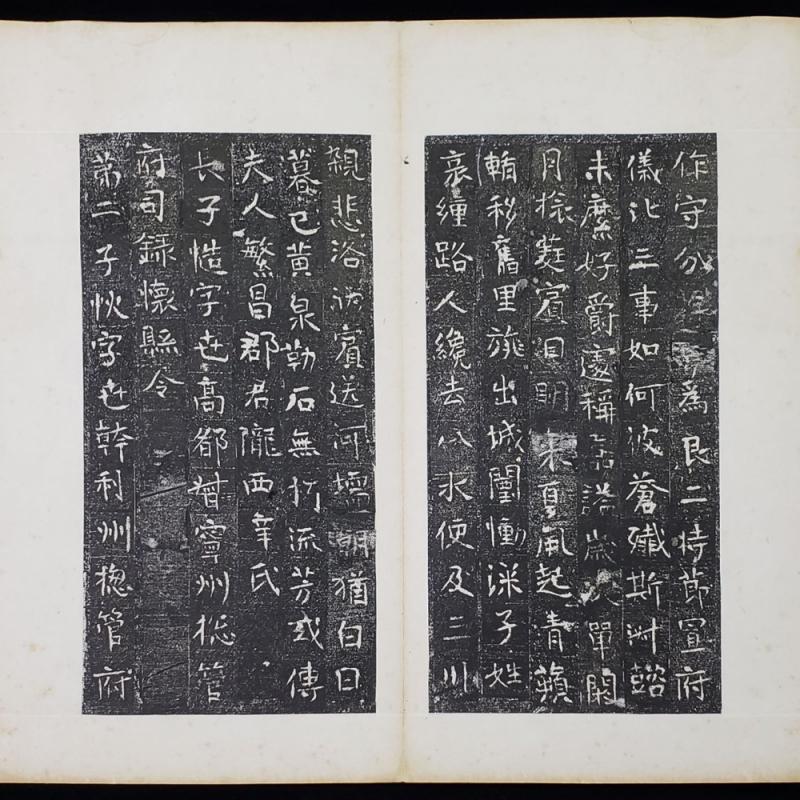 作守分為良二持節宣府
儀比三事如何彼蒼殲斯
未縻好爵遽稱歲次單閼
月蕤賓日朱夏風起青蘋
輴移舊里旐出城闉慟深子姓
哀纏路人纔去八水便及三川
親悲洛汭賓送河壖朝猶白日
暮已黄泉勒石無朽流芳或傳
夫人繁昌郡君隴西辛氏
長子慥字世高都督寧州揔管
府司録懷縣令
第二子字世幹利州揔管府